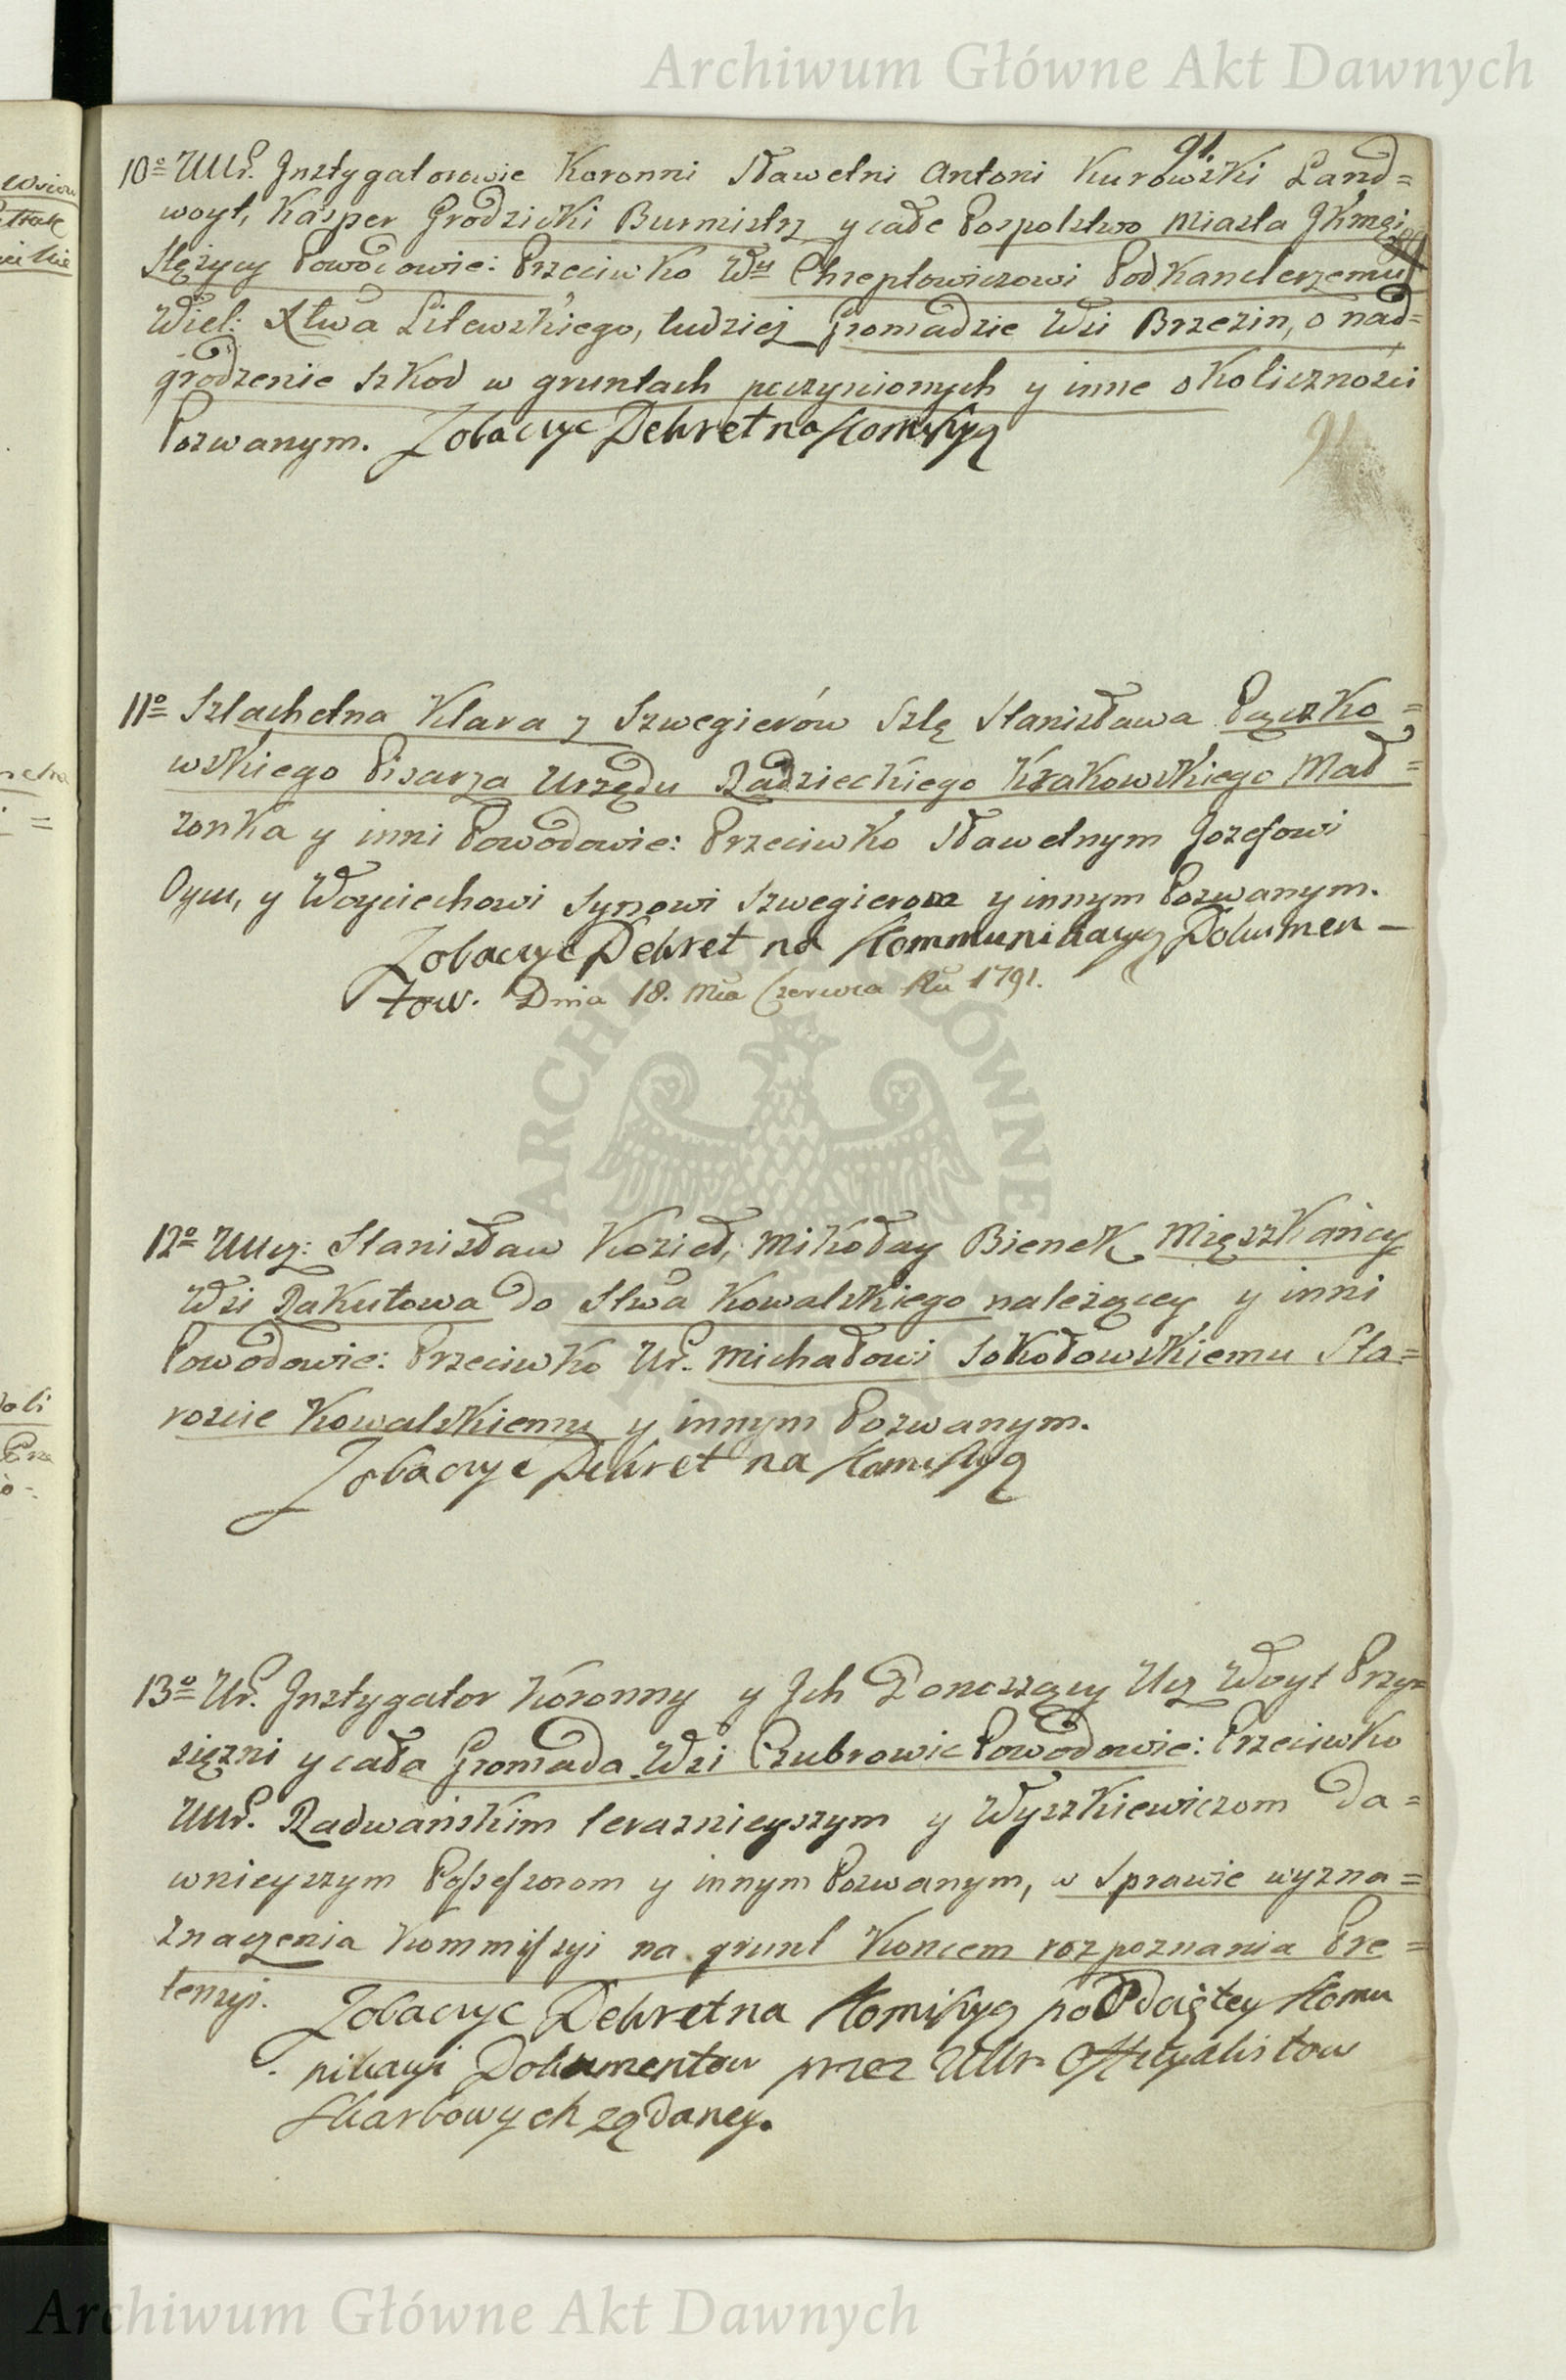 Archiwum Główne Akt Dawnych
91.
10º UUr. Instygatorowie Koronni Sławetni Antoni Kurowski Land=
woyt, Kasper Grodzicki Burmistrz y całe Pospolstwo Miasta JKmci
Stężycy Powodowie: Przeciwko Wu Chreptowiczowi Podkanclerzemu
Wiel: Xtwa Litewskiego, tudziej Gromadzie Wsi Brzezin, o nad=
grodzenie szkod w gruntach poczynionych y inne okoliczności
Pozwanym. Zobaczyc Dekret na Komissyą
91
11º Szlachetna Klara z Szwegierów Szlę Stanisława Pączko=
wskiego Pisarza Urzędu Radzieckiego Krakowskiego Mał=
żonka y inni Powodowie: Przeciwko Sławetnym Jozefowi
Oycu, y Woyciechowi Synowi Szwegierom y innym Pozwanym.
Zobaczyc Dekret na Kommunikacyą Dokumen-
tow. Dnia 18. Mca Czerwca Ru 1791.
ARCHIWUM GŁÓWNE AKT DAWNYCH
12º UUcz: Stanisław Kozieł, Mikołay Bienek Mięszkańcy
Wsi Rakutowa do Stwa Kowalskiego należącey y inni
Powodowie: Przeciwko Ur. Michałowi Sokołowskiemu Sta=
roscie Kowalskiemu y innym Pozwanym.
Zobaczyc Dekret na Komissyą
13º Ur. Instygator Koronny y Ich Donoszący Ucz Woyt Przy=
siężni y cała Gromada Wsi Czubrowic Powodowie: Przeciwko
UUr. Radwańskim teraznieyszym y Wyszkiewiczom da=
wnieyszym Possessorom y innym Pozwanym, w Sprawie wyzna=
znaczenia Kommissyi na grunt Koncem rozpoznania Pre=
tensyi. Zobaczyc Dekret na Komissyą po Odciętey Komu
nikacyi Dokumentow przez UUr Officyalistow
Skarbowych ządaney.
Archiwum Główne Akt Dawnych